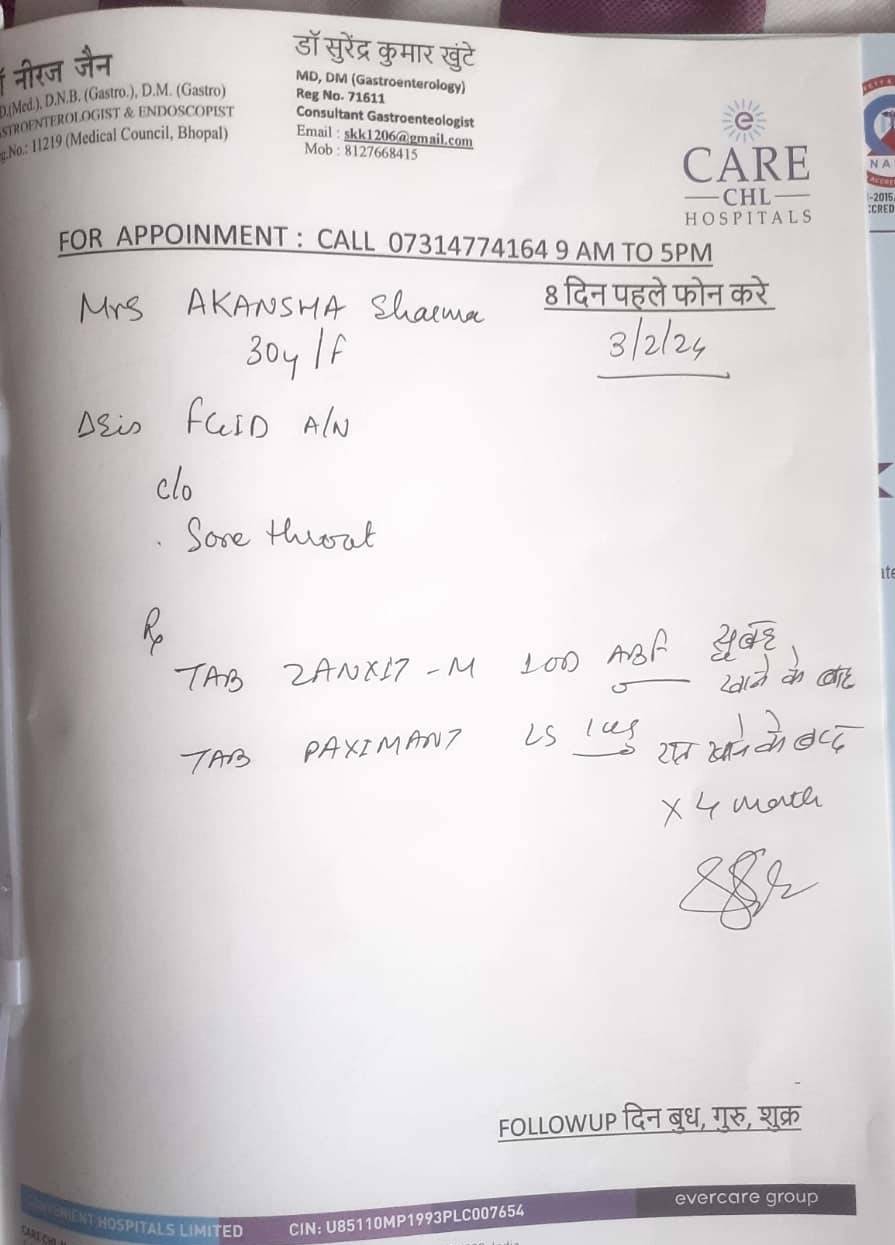 नीरज जैन
D.(Med.), D.N.B. (Gastro.), D.M. (Gastro)
ASTROENTEROLOGIST & ENDOSCOPIST
g.No.: 11219 (Medical Council, Bhopal)
डॉ सुरेंद्र कुमार खुंटे
MD, DM (Gastroenterology)
Reg No. 71611
Consultant Gastroenteologist
Email : skk1206@gmail.com
Mob : 8127668415
e
CARE
CHL
HOSPITALS
NA
-2015
CCRED
FOR APPOINMENT : CALL 07314774164 9 AM TO 5PM
8 दिन पहले फोन करे
Mrs AKANSHA Sharma
30y/F
3/2/24
FGID A/N
c/o
. Sore throat
Rx
TAB ZANXIT-M 100 ABF सुबह
खाने के बाद
TAB PAXIMANT LS रात खाने के बाद
x 4 month
FOLLOWUP दिन बुध, गुरु, शुक्र
evercare group
CONVENIENT HOSPITALS LIMITED CIN: U85110MP1993PLC007654